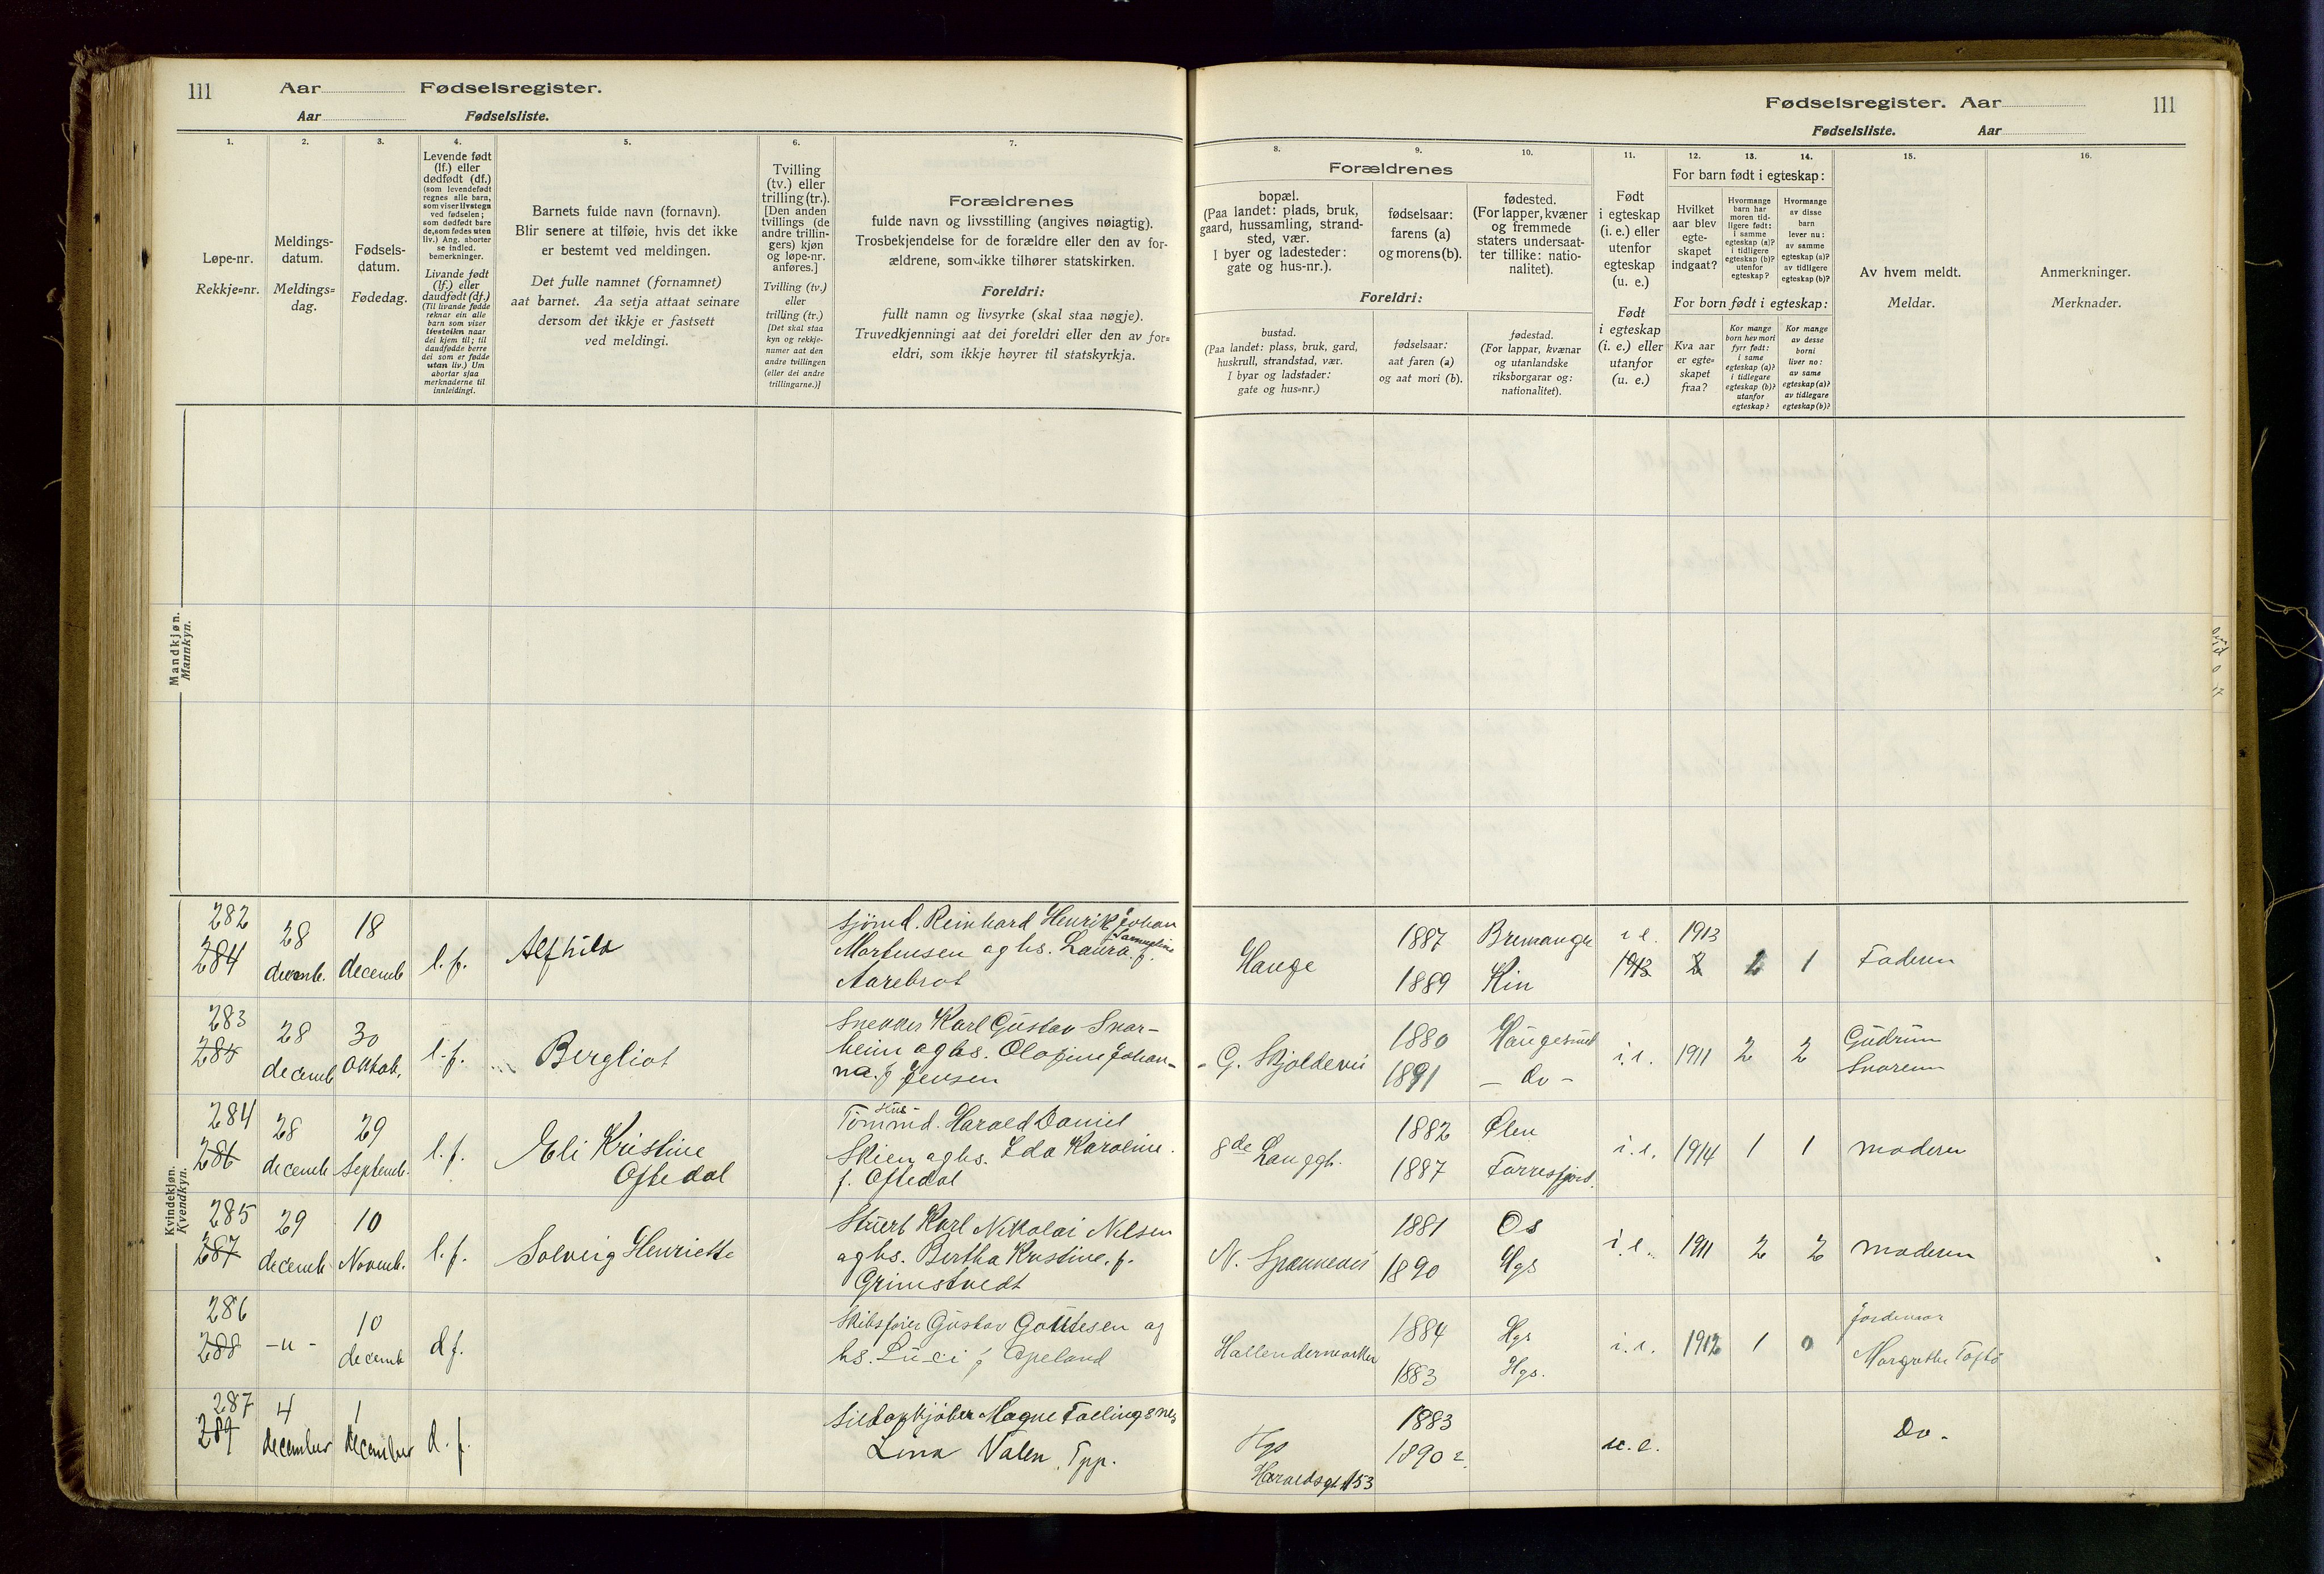 111 Aar Fødselsregister.
Aar Fødselsliste.
Fødselsregister. Aar 111
Fødselsliste. Aar
1. 2. 3. 4. 5. 6. 7.
Løpe-nr.
Rekkje=nr.
Meldings-
datum.
Meldings=
dag.
Fødsels-
datum.
Fødedag.
Levende født
(lf.) eller
dødfødt (df.)
(som levendefødt
regnes alle barn,
som viser livstegn
ved fødselen;
som dødfødt bare
de, som fødes uten
liv.) Ang. aborter
se indled.
bemerkninger.
Livande født
(lf.) eller
daudfødt (df.)
(Til livande fødde
reknar ein alle
barn som viser
livsteikn naar
dei kjem til; til
daudfødde berre
dei som er fødde
utan liv.) Um
abortar sjaa
merknaderne til
innleidingi.
Barnets fulde navn (fornavn).
Blir senere at tilføie, hvis det ikke
er bestemt ved meldingen.
Det fulle namnet (fornamnet)
aat barnet. Aa setja attaat seinare
dersom det ikkje er fastsett
ved meldingi.
Tvilling
(tv.) eller
trilling (tr.).
[Den anden
tvillings (de
andre trillin-
gers) kjøn
og løpe-nr.
anføres.]
Tvilling (tv.)
eller
trilling (tr.)
[Det skal staa
kyn og rekkje-
numer aat den
andre tvillingen
(eller dei andre
trillingarne.)]
Forældrenes
fulde navn og livsstilling (angives nøiagtig).
Trosbekjendelse for de forældre eller den av for-
ældrene, som ikke tilhører statskirken.
Foreldri:
fullt namn og livsyrke (skal staa nøgje).
Truvedkjenningi aat dei foreldri eller den av for=
eldri, som ikkje høyrer til statskyrkja.
8. 9. 10. 11. 12. 13. 14. 15. 16.
Forældrenes
bopæl.
(Paa landet: plads, bruk,
gaard, hussamling, strand-
sted, vær.
I byer og ladesteder:
gate og hus-nr.).
fødselsaar:
farens (a)
og morens (b).
fødested.
(For lapper, kvæner
og fremmede
staters undersaat-
ter tillike: natio-
nalitet).
Foreldri:
bustad.
(Paa landet: plass, bruk, gard,
huskrull, strandstad, vær.
I byar og ladstader:
gate og hus=nr.)
fødselsaar:
aat faren (a)
og aat mori (b).
fødestad.
(For lappar, kvænar
og utanlandske
riksborgarar og:
nationalitet).
Født
i egteskap
(i. e.) eller
utenfor
egteskap
(u. e.)
Født
i egteskap
(i. e.) eller
utanfor
(u. e.)
For barn født i egteskap:
Hvilket
aar blev
egte-
skapet
indgaat?
Hvormange
barn har
moren tid-
ligere født:
i samme
egteskap (a)?
i tidligere
egteskap (b)?
utenfor
egteskap?
Hvormange
av disse
barn
lever nu:
av samme
egteskap (a)?
av tidligere
egteskap (b)?
For born født i egteskap:
Kva aar
er egte=
skapet
fraa?
Kor mange
born hev mori
fyrr født:
i same
egteskap (a)?
i tidlegare
egteskap (b)?
utanfor
egteskap?
Kor mange
av desse
borni
liver no:
av same
egteskap (a)?
av tidlegare
egteskap (b)?
Av hvem meldt.
Meldar.
Anmerkninger.
Merknader.
Mandkjøn.
Mannkyn.
Kvindekjøn.
Kvendkyn.
282 284 28 decemb. 18 decemb l. f. Alfhild
sjömd. Reinhard Henrik Johan
Mortensen og hs. Laura Samueline f.
Aarebrot
Hauge 1887 1889 Bremanger Kin i e. 1913 1913 2 2 1 Faderen
283 285 28 decemb 30 Oktob. l. f. Bergliot
Snekker Karl Gustav Snar-
heim og hs. Olafine Johan-
na f Jensen
G. Skjoldevei 1880 1891 Haugesund - do - i. e. 1911 2 2 Gudrun
284 286 28 decemb 29 Septemb. l. f. Eli Kristine
Oftedal
Tömmd. Harald Daniel
Skien og hs. Ida Karoline
f. Oftedal
8de Langgt. 1882 1887 Ølen Torresfjord. i. e. 1914 1 1 moderen
285 287 29 decemb 10 Novemb. l. f. Solveig Henriette
Stuert Karl Nikolai Nilsen
og hs. Bertha Kristine. f.
Grimstvedt
N. Spannevei 1881 1890 Os Hgs i. e. 1911 2 2 moderen
286 288 -"- 10 decemb d f.
Skibsfører Gustav Gottesen og
hs. Luci f Opeland
1884 1883 Hgs Hgs. i. e. 1912 1 0 Jordemor
Margrethe
287 289 4 december 1 december d. f.
Sildopkjöber Magne Follingsnes
Lina Valen. Tpp.
Hgs 1883 1890? u. e. Do.
Haraldsgt. 153